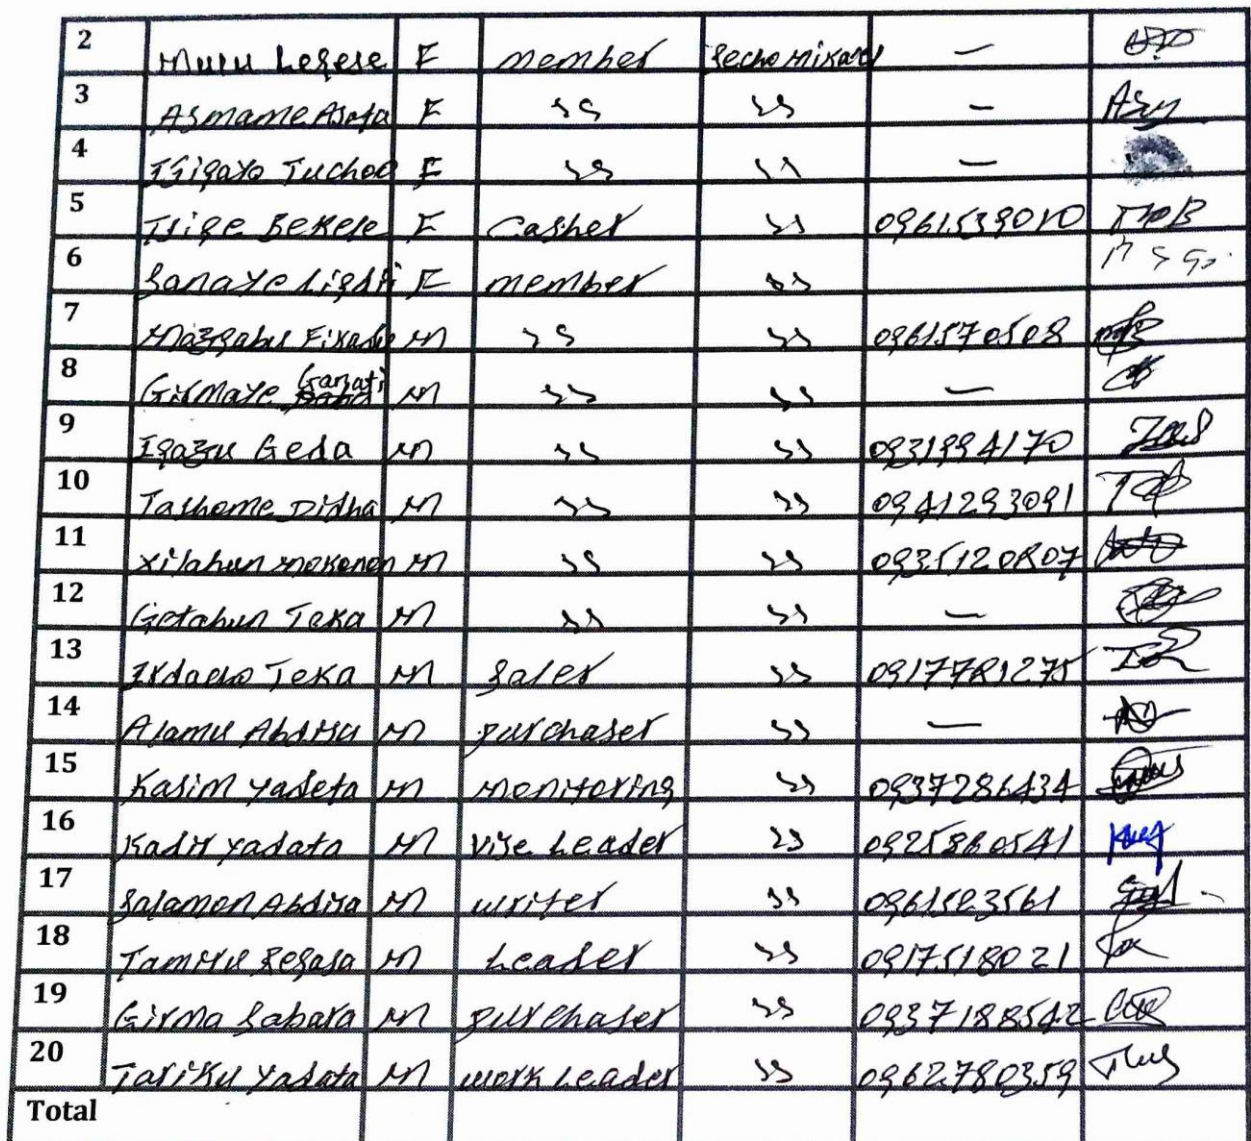 2 Mulu Legese F member Secho Mikael —
3 Asmame Asefa F " " —
4 Isigaxo Tuchoo F " " —
5 Tsige Bekele F Casher " 0961539010 TMB
6 Sanaye F member "
7 Mazgabu Fikadu M " " 0961570508
8 Girmaye Ganati M " " —
9 Igazu Geda M " " 0931994170
10 Tashome Disha M " " 0941293091
11 Xilahun Mokonen M " " 0935120807
12 Getahun Teka M " " —
13 Irdawo Teka M Saler " 0917781275
14 Alamu Abdisa M purchaser " —
15 Kasim Yadeta M monitoring " 0937286434
16 Kadir Yadata M Vise Leader " 0925860541
17 Salamon Abdisa M writer " 0961523561
18 Tamiru Regasa M Leader " 0917518021
19 Girma Sabara M purchaser " 0937188542
20 Tariku Yadata M work Leader " 0962780359
Total